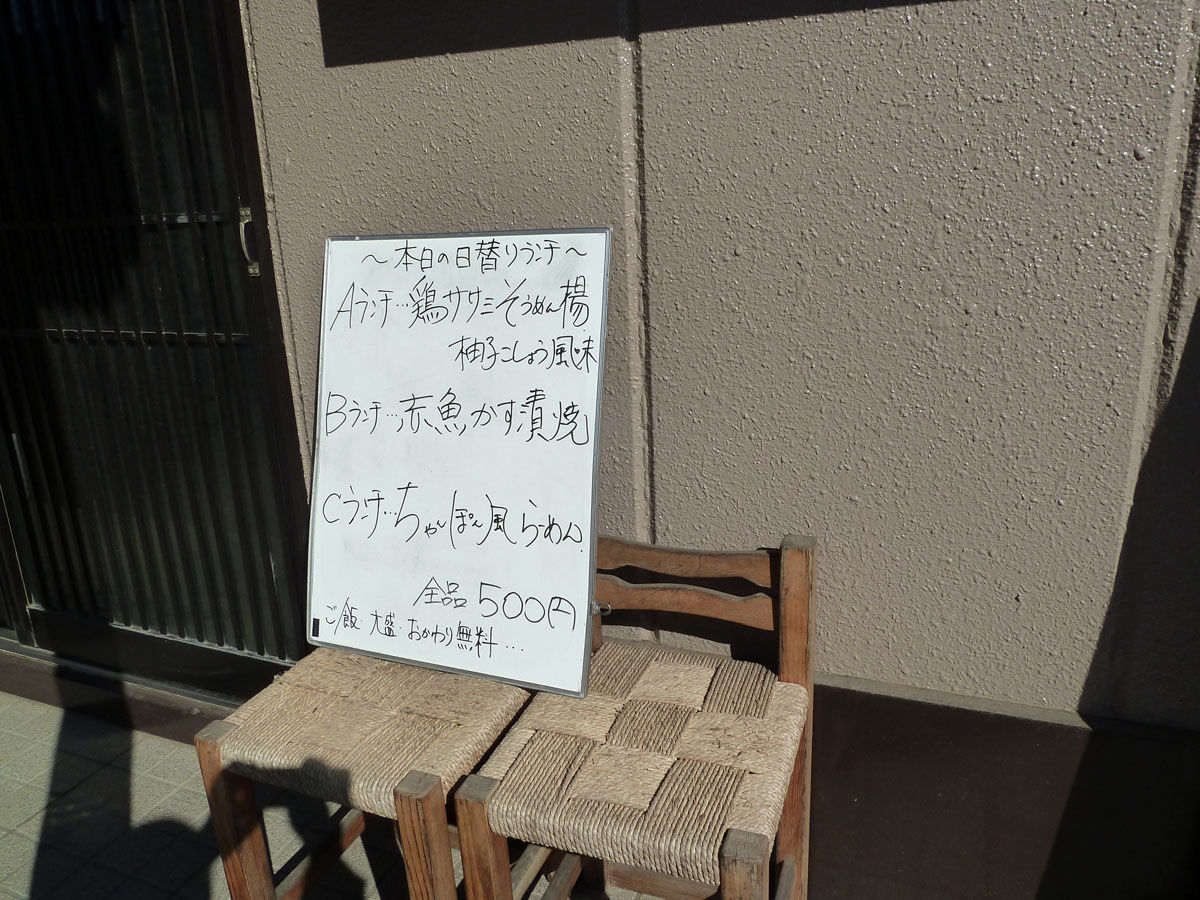 ～本日の日替りランチ～
Aランチ…鶏ササミそうめん揚
柚子こしょう風味
Bランチ…赤魚かす漬焼
Cランチ…ちゃんぽん風らーめん
全品500円
ご飯・大盛・おかわり無料・・・・